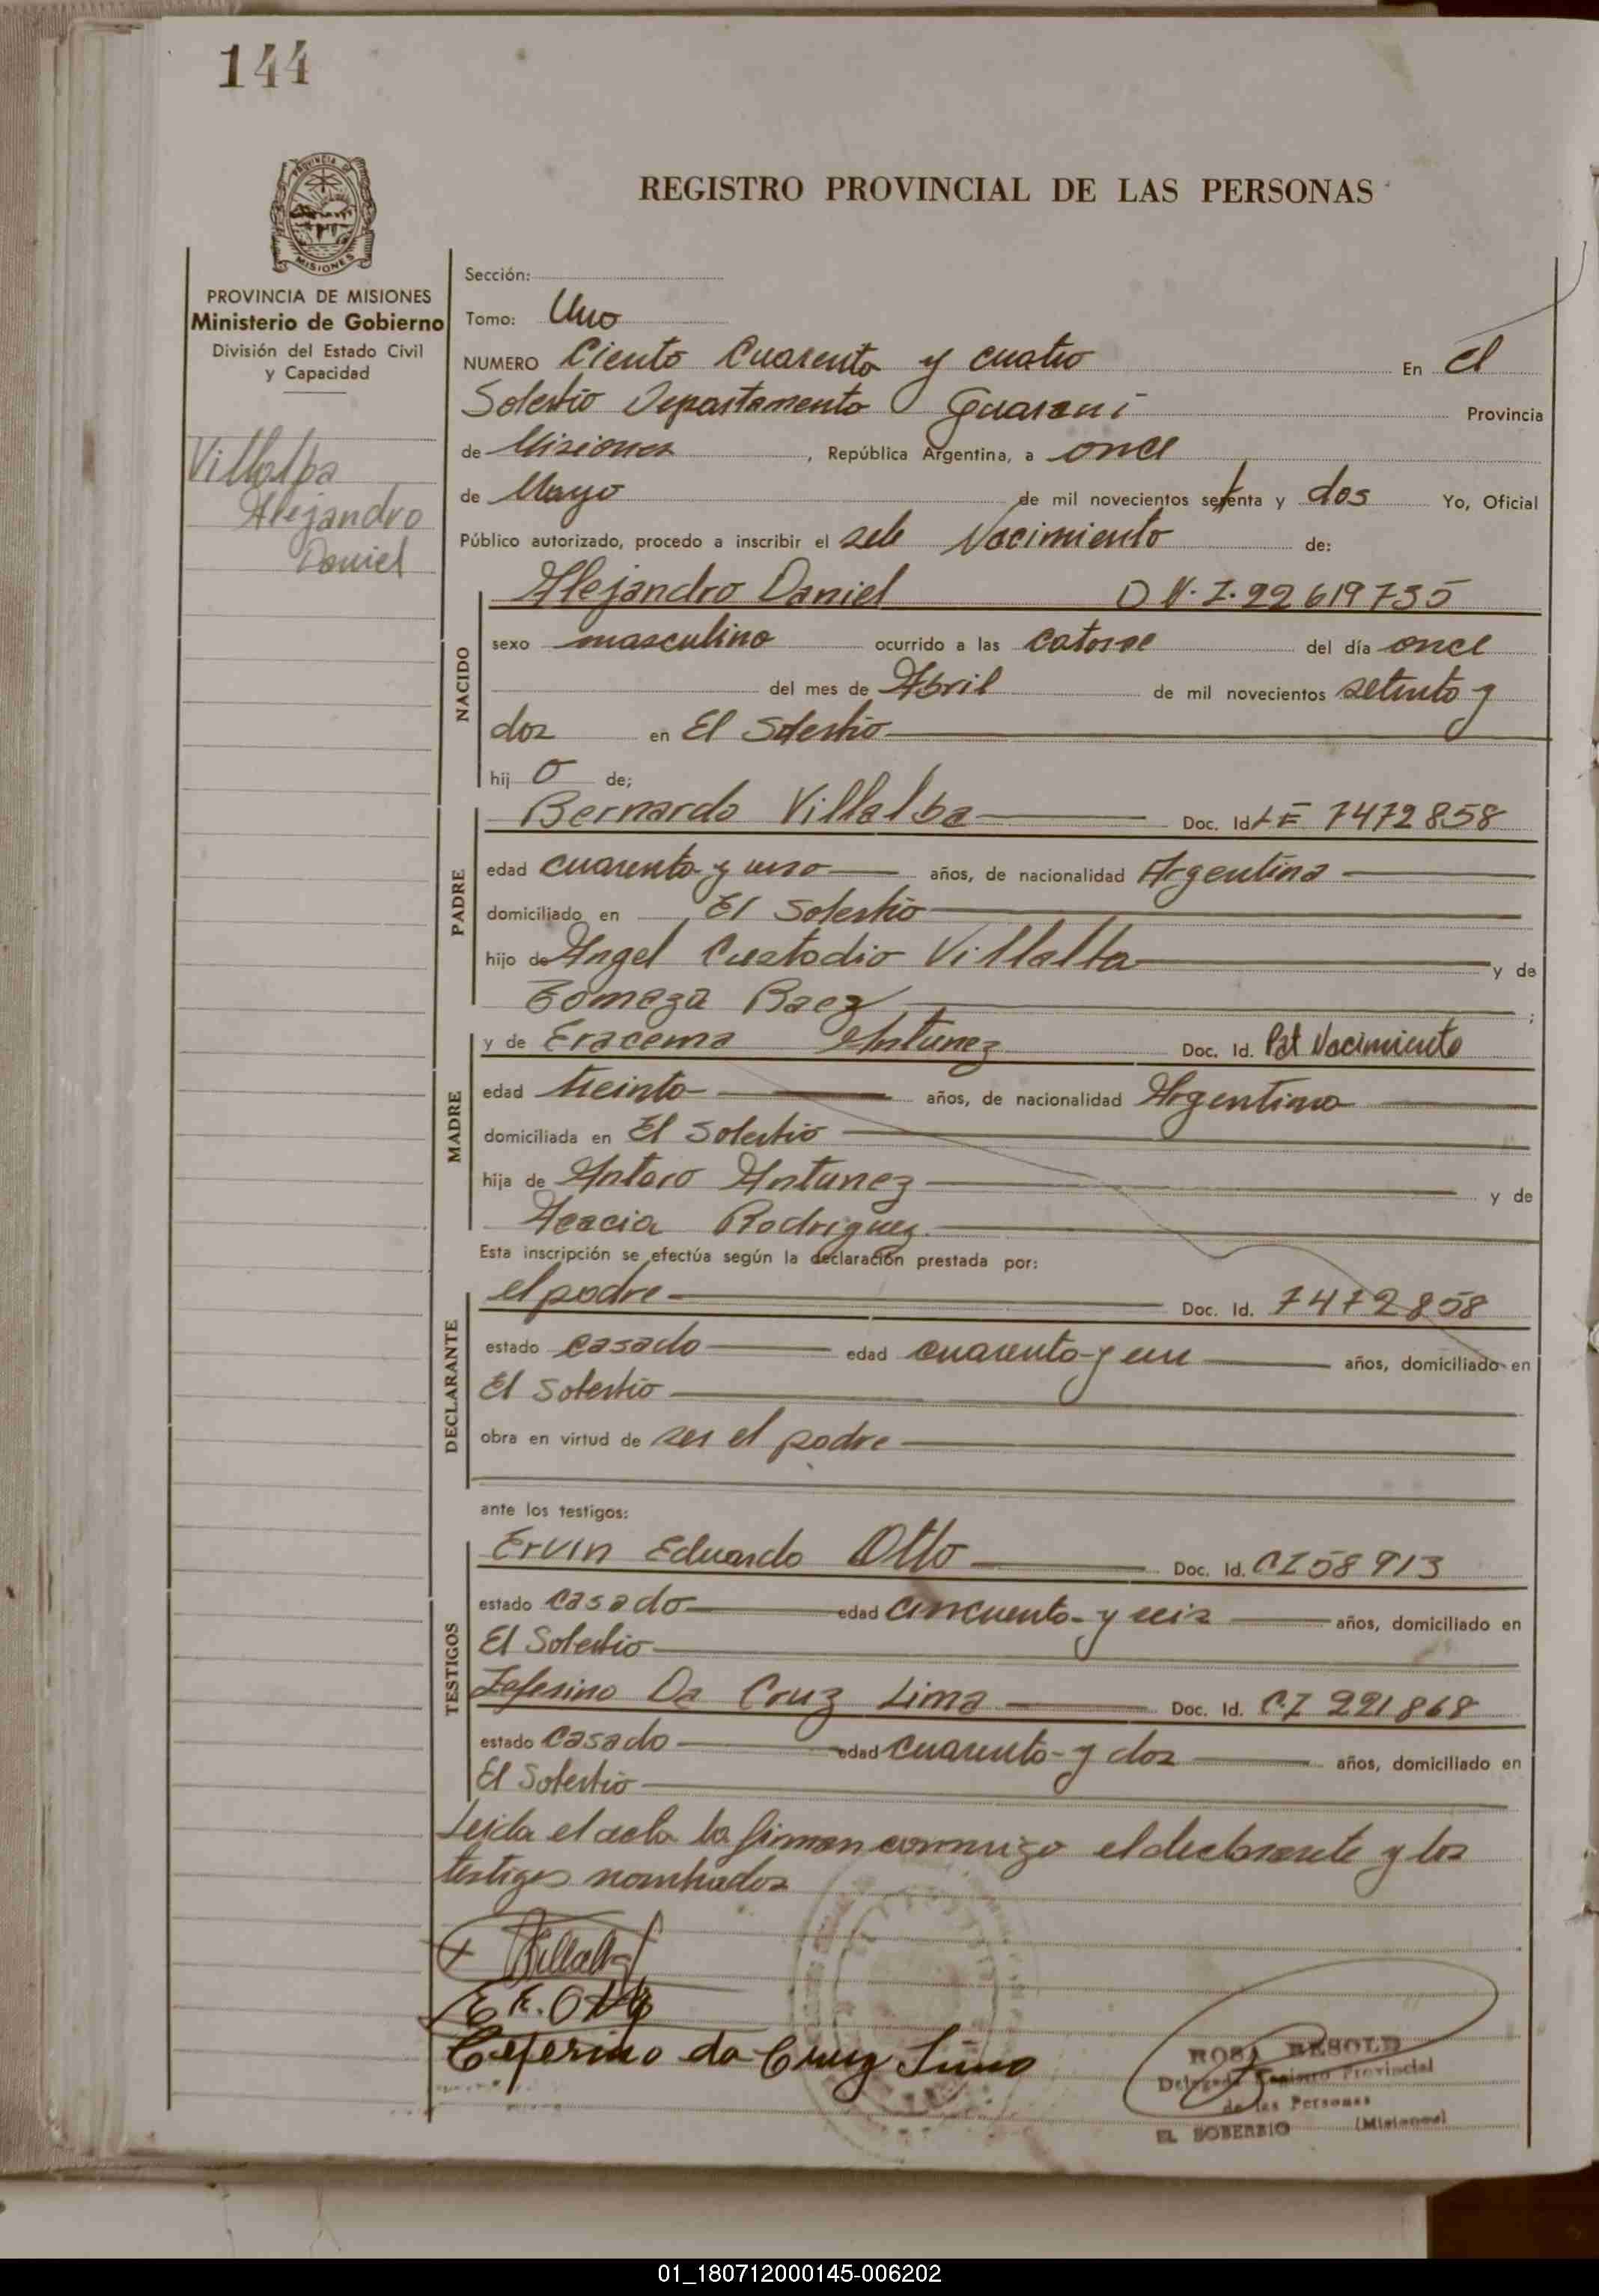 144
REGISTRO PROVINCIAL DE LAS PERSONAS
PROVINCIA DE MISIONES
MISIONES
PROVINCIA DE MISIONES
Ministerio de Gobierno
División del Estado Civil
y Capacidad
Villalba
Alejandro
Daniel
Sección:
Tomo: Uno
NUMERO Ciento Cuarenta y cuatro En El
Soberbio Departamento Guaraní Provincia
de Misiones, República Argentina, a once
de Mayo de mil novecientos setenta y dos Yo, Oficial
Público autorizado, procedo a inscribir el Nacimiento de:
NACIDO
Alejandro Daniel D.N.I. 22619735
sexo masculino ocurrido a las catorce del día once
del mes de Abril de mil novecientos setenta y
dos en El Soberbio
hij o de;
PADRE
Bernardo Villalba Doc. Id LE 7472858
edad cuarenta y uno años, de nacionalidad Argentina
domiciliado en El Soberbio
hijo de Angel Custodio Villalba y de
Tomeza Baez ;
MADRE
y de Eracema Antunez Doc. Id. Pat Nacimiento
edad treinta años, de nacionalidad Argentina
domiciliada en El Soberbio
hija de Antoro Antunez y de
Acacia Rodriguez
Esta inscripción se efectúa según la declaración prestada por:
DECLARANTE
el padre Doc. Id. 7472858
estado casado edad cuarenta y un años, domiciliado en
El Soberbio
obra en virtud de ser el padre
ante los testigos:
TESTIGOS
Ervin Eduardo Otto Doc. Id. CI 58913
estado casado edad cincuenta y seis años, domiciliado en
El Soberbio
Zeferino Da Cruz Lima Doc. Id. C.I 221868
estado casado edad cuarenta y dos años, domiciliado en
El Soberbio
Leida el acta la firman conmigo el declarante y los
testigos nombrados
Villalba
E E. Otto
Ceferino da Cruz Lima
ROSA BESOLD
Delegada Registro Provincial
de las Personas
EL SOBERBIO (Misiones)
01_180712000145-006202